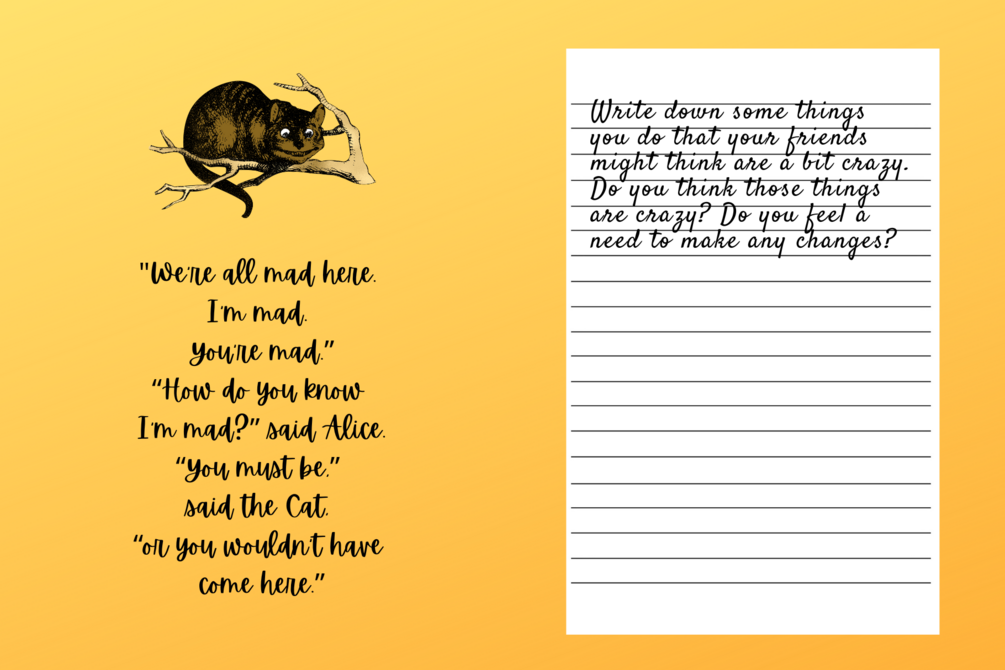 "We're all mad here.
I'm mad.
You're mad."
"How do you know
I'm mad?" said Alice.
"You must be."
said the Cat.
"or you wouldn't have
come here."
Write down some things
you do that your friends
might think are a bit crazy.
Do you think those things
are crazy? Do you feel a
need to make any changes?